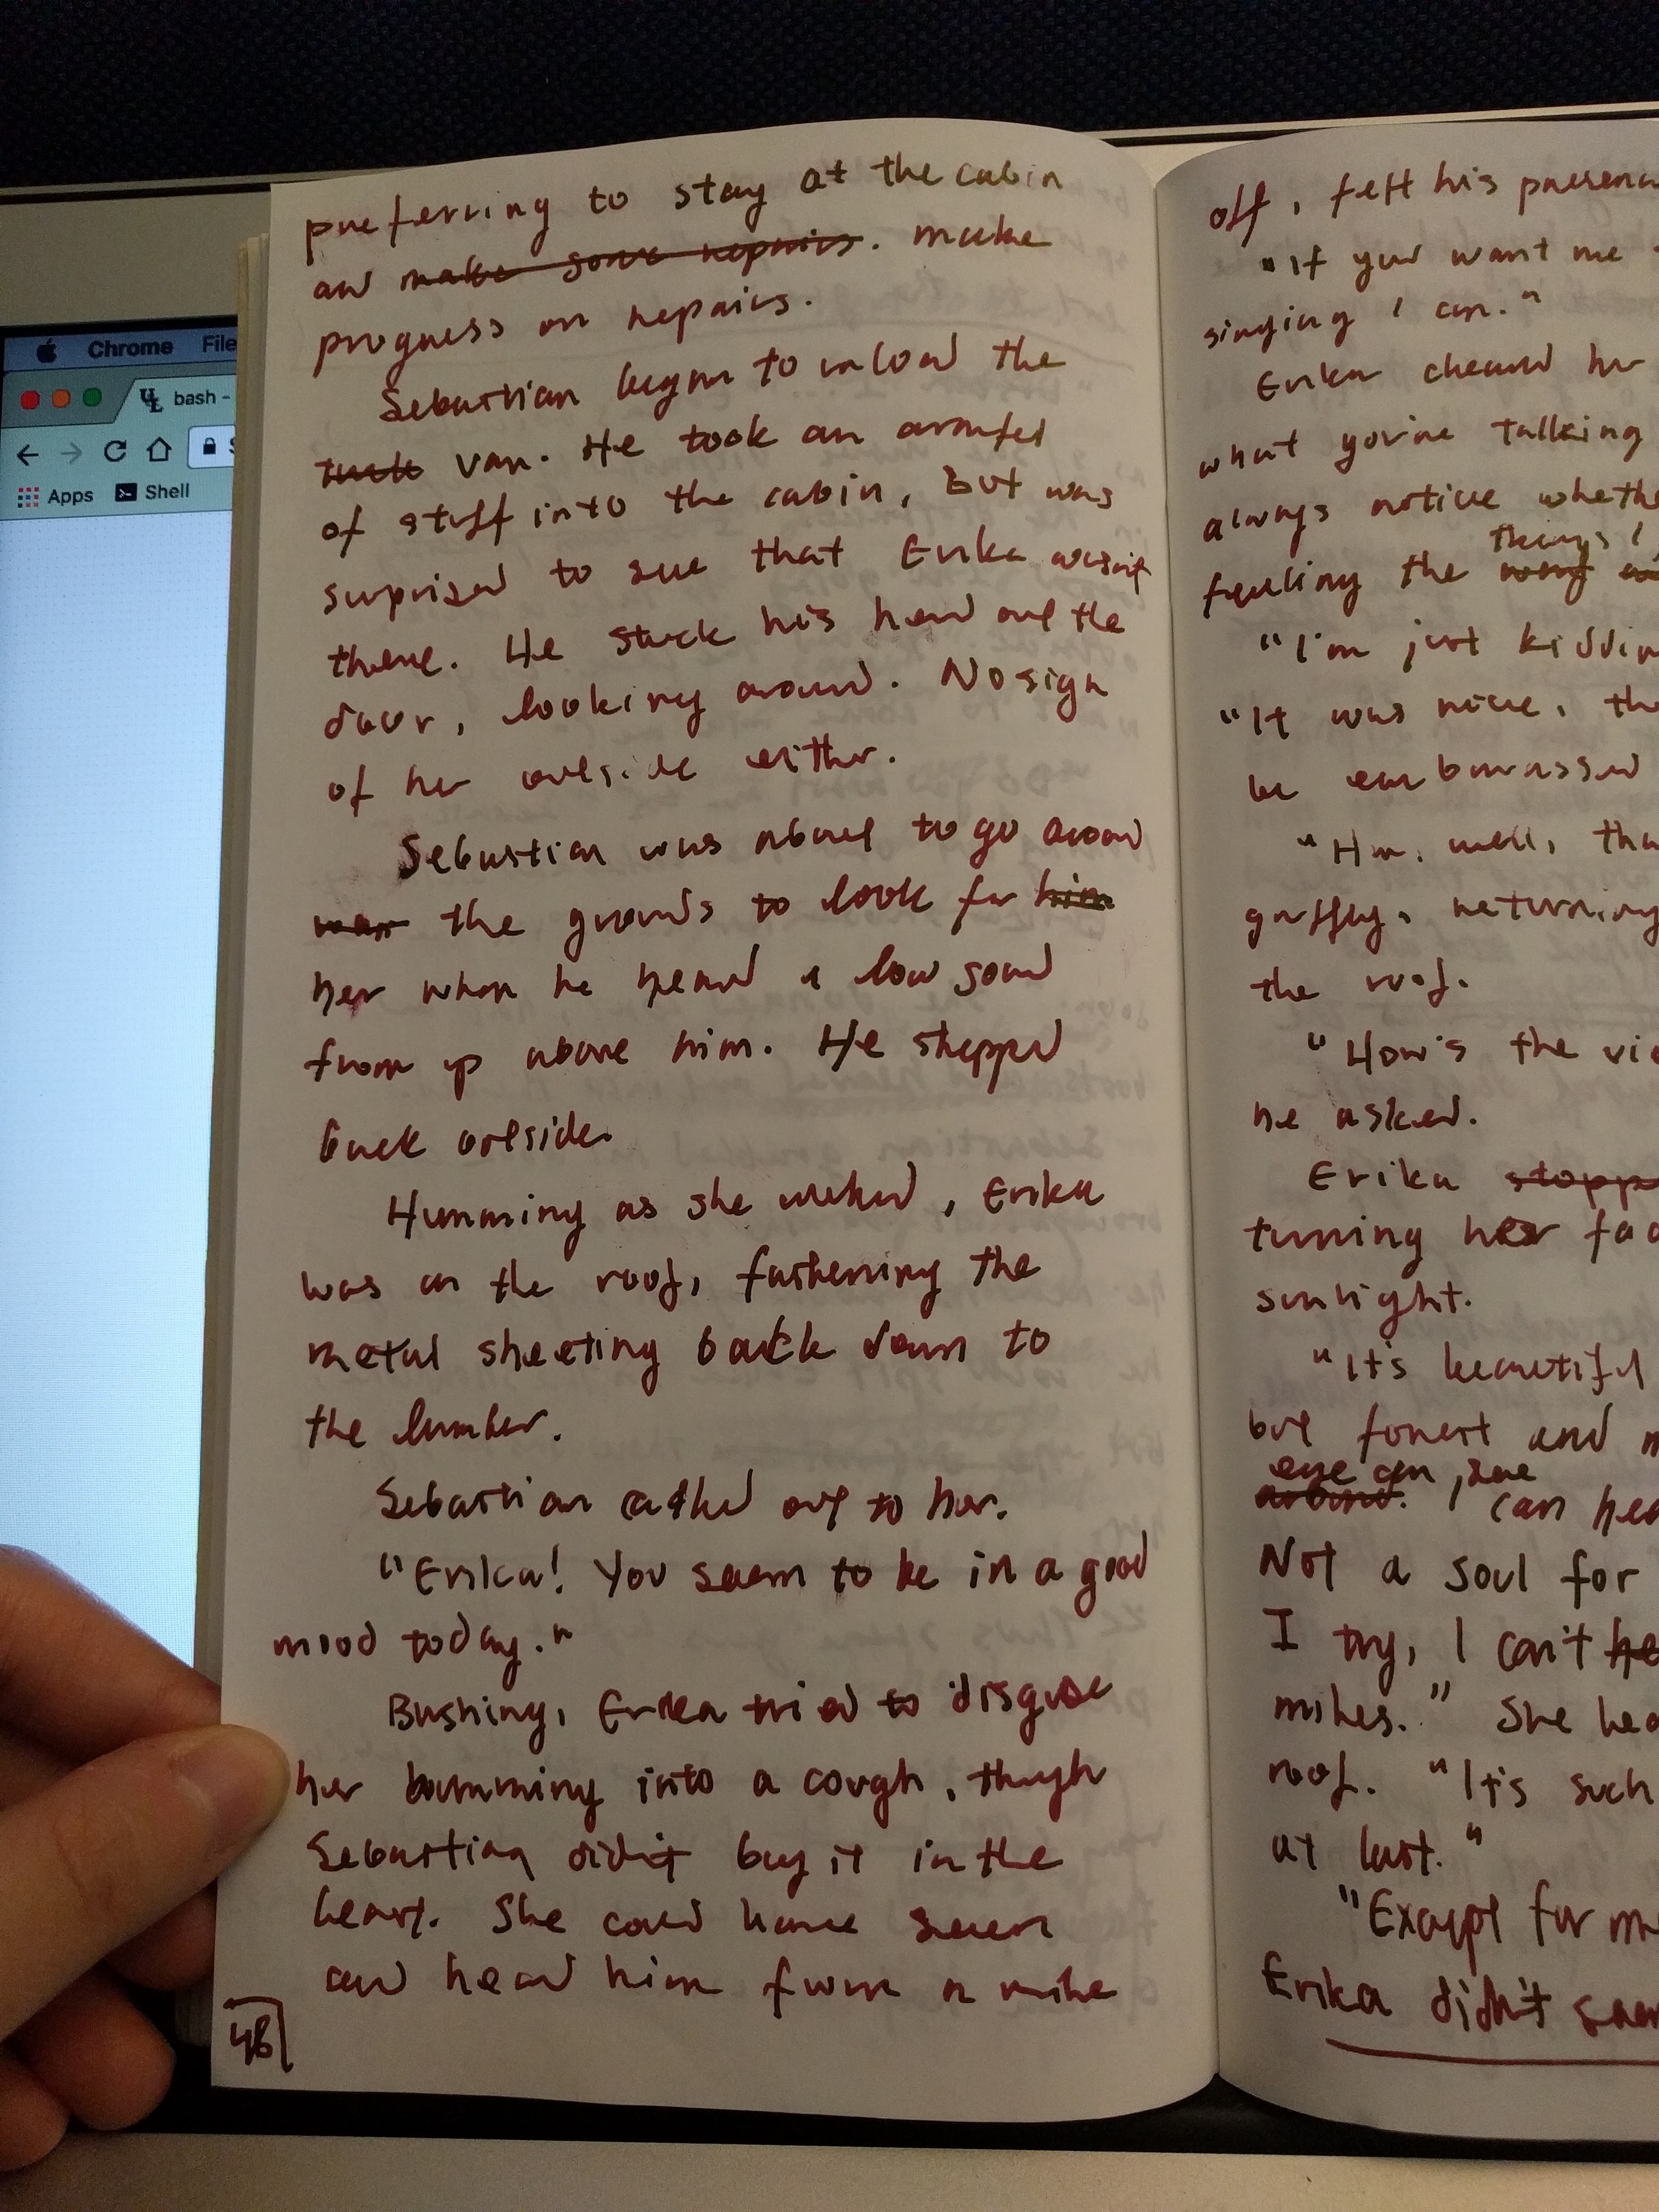 Chrome File
bash -
Apps Shell
preferring to stay at the cabin
and make some repairs. make
progress on repairs.
Sebastian began to unload the
truck van. He took an armful
of stuff into the cabin, but was
surprised to see that Erika wasn't
there. He stuck his head out the
door, looking around. No sign
of her outside either.
Sebastian was about to go around
the grounds to look for him
her when he heard a low sound
from up above him. He stepped
back outside.
Humming as she worked, Erika
was on the roof, fastening the
metal sheeting back down to
the lumber.
Sebastian called out to her.
"Erika! You seem to be in a good
mood today."
Bushing, Erika tried to disguise
her humming into a cough, though
Sebastian didn't buy it in the
least. She could have seen
and heard him from a mile
48
off, felt his presenc
"If you want me
singing I can."
Erika cleared her
what you're talking
always notice whethe
things I
feeling the way
"I'm just kiddin
"It was nice, tho
be embarrassed
"Hm, well, tha
gruffly, returning
the roof.
"How's the vie
he asked.
Erika stopp
turning her fac
sunlight.
"It's beautiful
but forest and m
eye can see
around. I can hea
Not a soul for
I try, I can't he
miles." She hea
roof. "It's such
at last."
"Except for me
Erika didn't seem